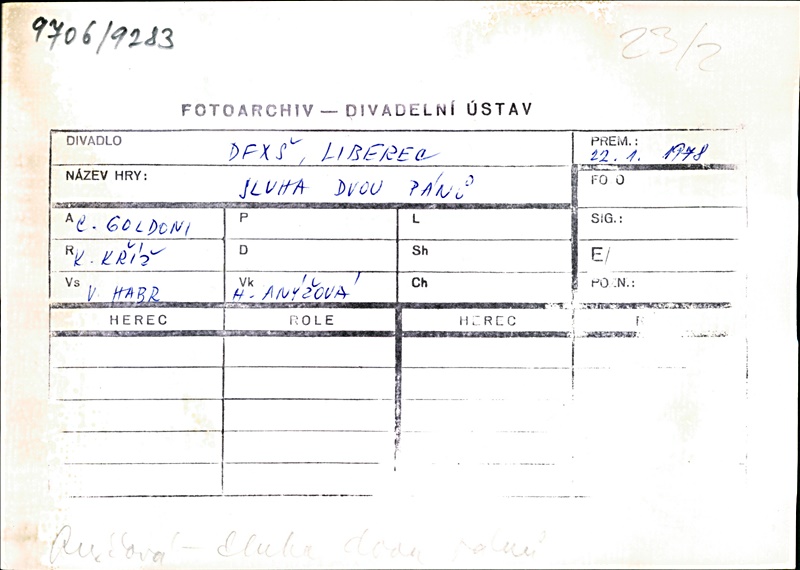 9706/9283
23/2
FOTOARCHIV — DIVADELNÍ ÚSTAV
DIVADLO DFXŠ, LIBEREC PREM.: 22. 1. 1978
NÁZEV HRY: SLUHA DVOU PÁNŮ FOTO
A C. GOLDONI P L SIG.:
R K. KŘÍŽ D Sh E/
Vs V. HABR Vk A. ANÝŽOVÁ Ch POZN.:
HEREC ROLE HEREC
sluha dvou pánů